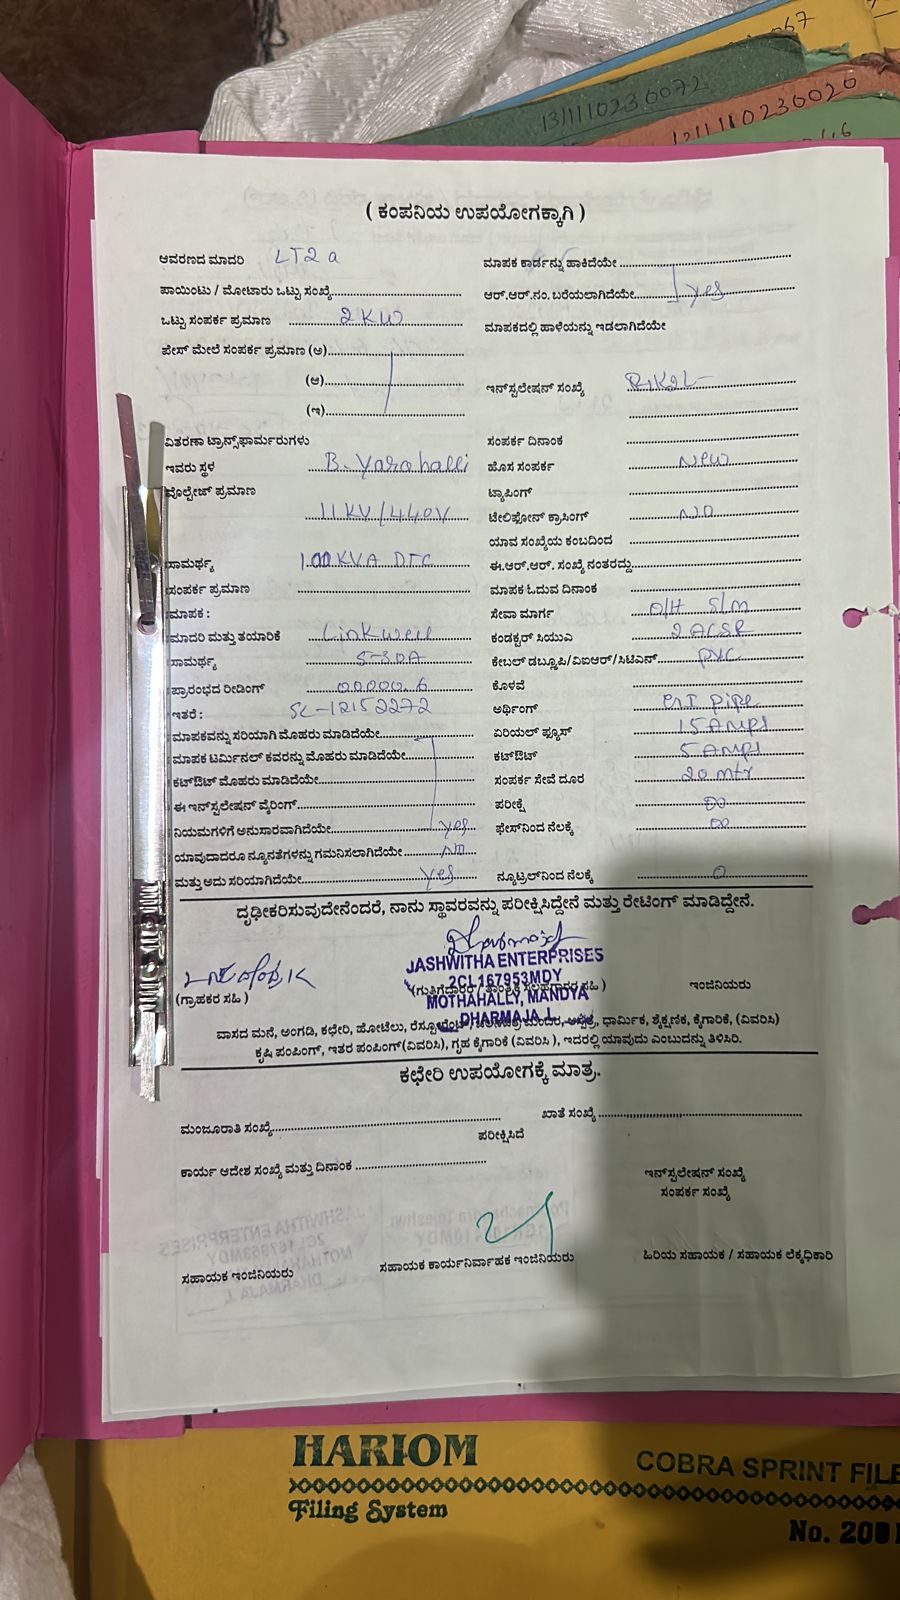 13111110236072
( ಕಂಪನಿಯ ಉಪಯೋಗಕ್ಕಾಗಿ )
ಆವರಣದ ಮಾದರಿ LT2a
ಮಾಪಕ ಕಾರ್ಡನ್ನು ಹಾಕಿದೆಯೇ
ಪಾಯಿಂಟು / ಮೋಟಾರು ಒಟ್ಟು ಸಂಖ್ಯೆ
ಆರ್.ಆರ್.ನಂ. ಬರೆಯಲಾಗಿದೆಯೇ yes
ಒಟ್ಟು ಸಂಪರ್ಕ ಪ್ರಮಾಣ 2KW
ಮಾಪಕದಲ್ಲಿ ಹಾಳೆಯನ್ನು ಇಡಲಾಗಿದೆಯೇ
ಪೇಸ್ ಮೇಲೆ ಸಂಪರ್ಕ ಪ್ರಮಾಣ (ಅ)
(ಆ)
ಇನ್‌ಸ್ಟಲೇಷನ್ ಸಂಖ್ಯೆ
(ಇ)
ವಿತರಣಾ ಟ್ರಾನ್ಸ್‌ಫಾರ್ಮರುಗಳು
ಸಂಪರ್ಕ ದಿನಾಂಕ
ಇವರು ಸ್ಥಳ B. Yarahalli
ಹೊಸ ಸಂಪರ್ಕ New
ವೊಲ್ಟೇಜ್ ಪ್ರಮಾಣ
ಟ್ಯಾಪಿಂಗ್
11KV/440V
ಟೇಲಿಫೋನ್ ಕ್ರಾಸಿಂಗ್ NO
ಯಾವ ಸಂಖ್ಯೆಯ ಕಂಬದಿಂದ
ಸಾಮರ್ಥ್ಯ 100KVA DTC
ಈ.ಆರ್.ಆರ್. ಸಂಖ್ಯೆ ನಂತರದ್ದು
ಸಂಪರ್ಕ ಪ್ರಮಾಣ
ಮಾಪಕ ಓದುವ ದಿನಾಂಕ
ಮಾಪಕ :
ಸೇವಾ ಮಾರ್ಗ O/H S/M
ಮಾದರಿ ಮತ್ತು ತಯಾರಿಕೆ Linkwell
ಕಂಡಕ್ಟರ್ ಸಿಯುಎ 2 ACSR
ಸಾಮರ್ಥ್ಯ 5-30A
ಕೇಬಲ್ ಡಬ್ಲೂಪಿ/ವಿಐಆರ್/ಸಿಟಿಎನ್ PVC
ಪ್ರಾರಂಭದ ರೀಡಿಂಗ್ 00000.6
ಕೊಳವೆ
ಇತರೆ : SL-12152272
ಅರ್ಥಿಂಗ್ GI pipe
ಮಾಪಕವನ್ನು ಸರಿಯಾಗಿ ಮೊಹರು ಮಾಡಿದೆಯೇ
ಏರಿಯಲ್ ಫ್ಯೂಸ್ 15 Amps
ಮಾಪಕ ಟರ್ಮಿನಲ್ ಕವರನ್ನು ಮೊಹರು ಮಾಡಿದೆಯೇ
ಕಟ್‌ಔಟ್ 5 Amps
ಕಟ್‌ಔಟ್ ಮೊಹರು ಮಾಡಿದೆಯೇ
ಸಂಪರ್ಕ ಸೇವೆ ದೂರ 20 mtr
ಈ ಇನ್‌ಸ್ಟಲೇಷನ್ ವೈರಿಂಗ್
ಪರೀಕ್ಷೆ ∞
ನಿಯಮಗಳಿಗೆ ಅನುಸಾರವಾಗಿದೆಯೇ yes
ಫೇಸ್‌ನಿಂದ ನೆಲಕ್ಕೆ ∞
ಯಾವುದಾದರೂ ನ್ಯೂನತೆಗಳನ್ನು ಗಮನಿಸಲಾಗಿದೆಯೇ NO
ಮತ್ತು ಅದು ಸರಿಯಾಗಿದೆಯೇ yes
ನ್ಯೂಟ್ರಲ್‌ನಿಂದ ನೆಲಕ್ಕೆ 0
ದೃಢೀಕರಿಸುವುದೇನೆಂದರೆ, ನಾನು ಸ್ಥಾವರವನ್ನು ಪರೀಕ್ಷಿಸಿದ್ದೇನೆ ಮತ್ತು ರೇಟಿಂಗ್ ಮಾಡಿದ್ದೇನೆ.
JASHWITHA ENTERPRISES
2CL167953MDY
(ಗ್ರಾಹಕರ ಸಹಿ )
(ಗುತ್ತಿಗೆದಾರರ / ತಾಂತ್ರಿಕ ಸಲಹಗಾರರ ಸಹಿ )
ಇಂಜಿನಿಯರು
MOTHAHALLY, MANDYA
DHARMAJA.L
ವಾಸದ ಮನೆ, ಅಂಗಡಿ, ಕಛೇರಿ, ಹೋಟೆಲು, ಧಾರ್ಮಿಕ, ಶೈಕ್ಷಣಿಕ, ಕೈಗಾರಿಕೆ, (ವಿವರಿಸಿ)
ಕೃಷಿ ಪಂಪಿಂಗ್, ಇತರ ಪಂಪಿಂಗ್(ವಿವರಿಸಿ), ಗೃಹ ಕೈಗಾರಿಕೆ (ವಿವರಿಸಿ ), ಇದರಲ್ಲಿ ಯಾವುದು ಎಂಬುದನ್ನು ತಿಳಿಸಿರಿ.
ಕಛೇರಿ ಉಪಯೋಗಕ್ಕೆ ಮಾತ್ರ.
ಮಂಜೂರಾತಿ ಸಂಖ್ಯೆ
ಖಾತೆ ಸಂಖ್ಯೆ
ಪರೀಕ್ಷಿಸಿದೆ
ಕಾರ್ಯ ಆದೇಶ ಸಂಖ್ಯೆ ಮತ್ತು ದಿನಾಂಕ
ಇನ್‌ಸ್ಟಲೇಷನ್ ಸಂಖ್ಯೆ
ಸಂಪರ್ಕ ಸಂಖ್ಯೆ
ಸಹಾಯಕ ಇಂಜಿನಿಯರು
ಸಹಾಯಕ ಕಾರ್ಯನಿರ್ವಾಹಕ ಇಂಜಿನಿಯರು
ಹಿರಿಯ ಸಹಾಯಕ / ಸಹಾಯಕ ಲೆಕ್ಕಧಿಕಾರಿ
HARIOM
COBRA SPRINT FILE
Filing System
No. 200